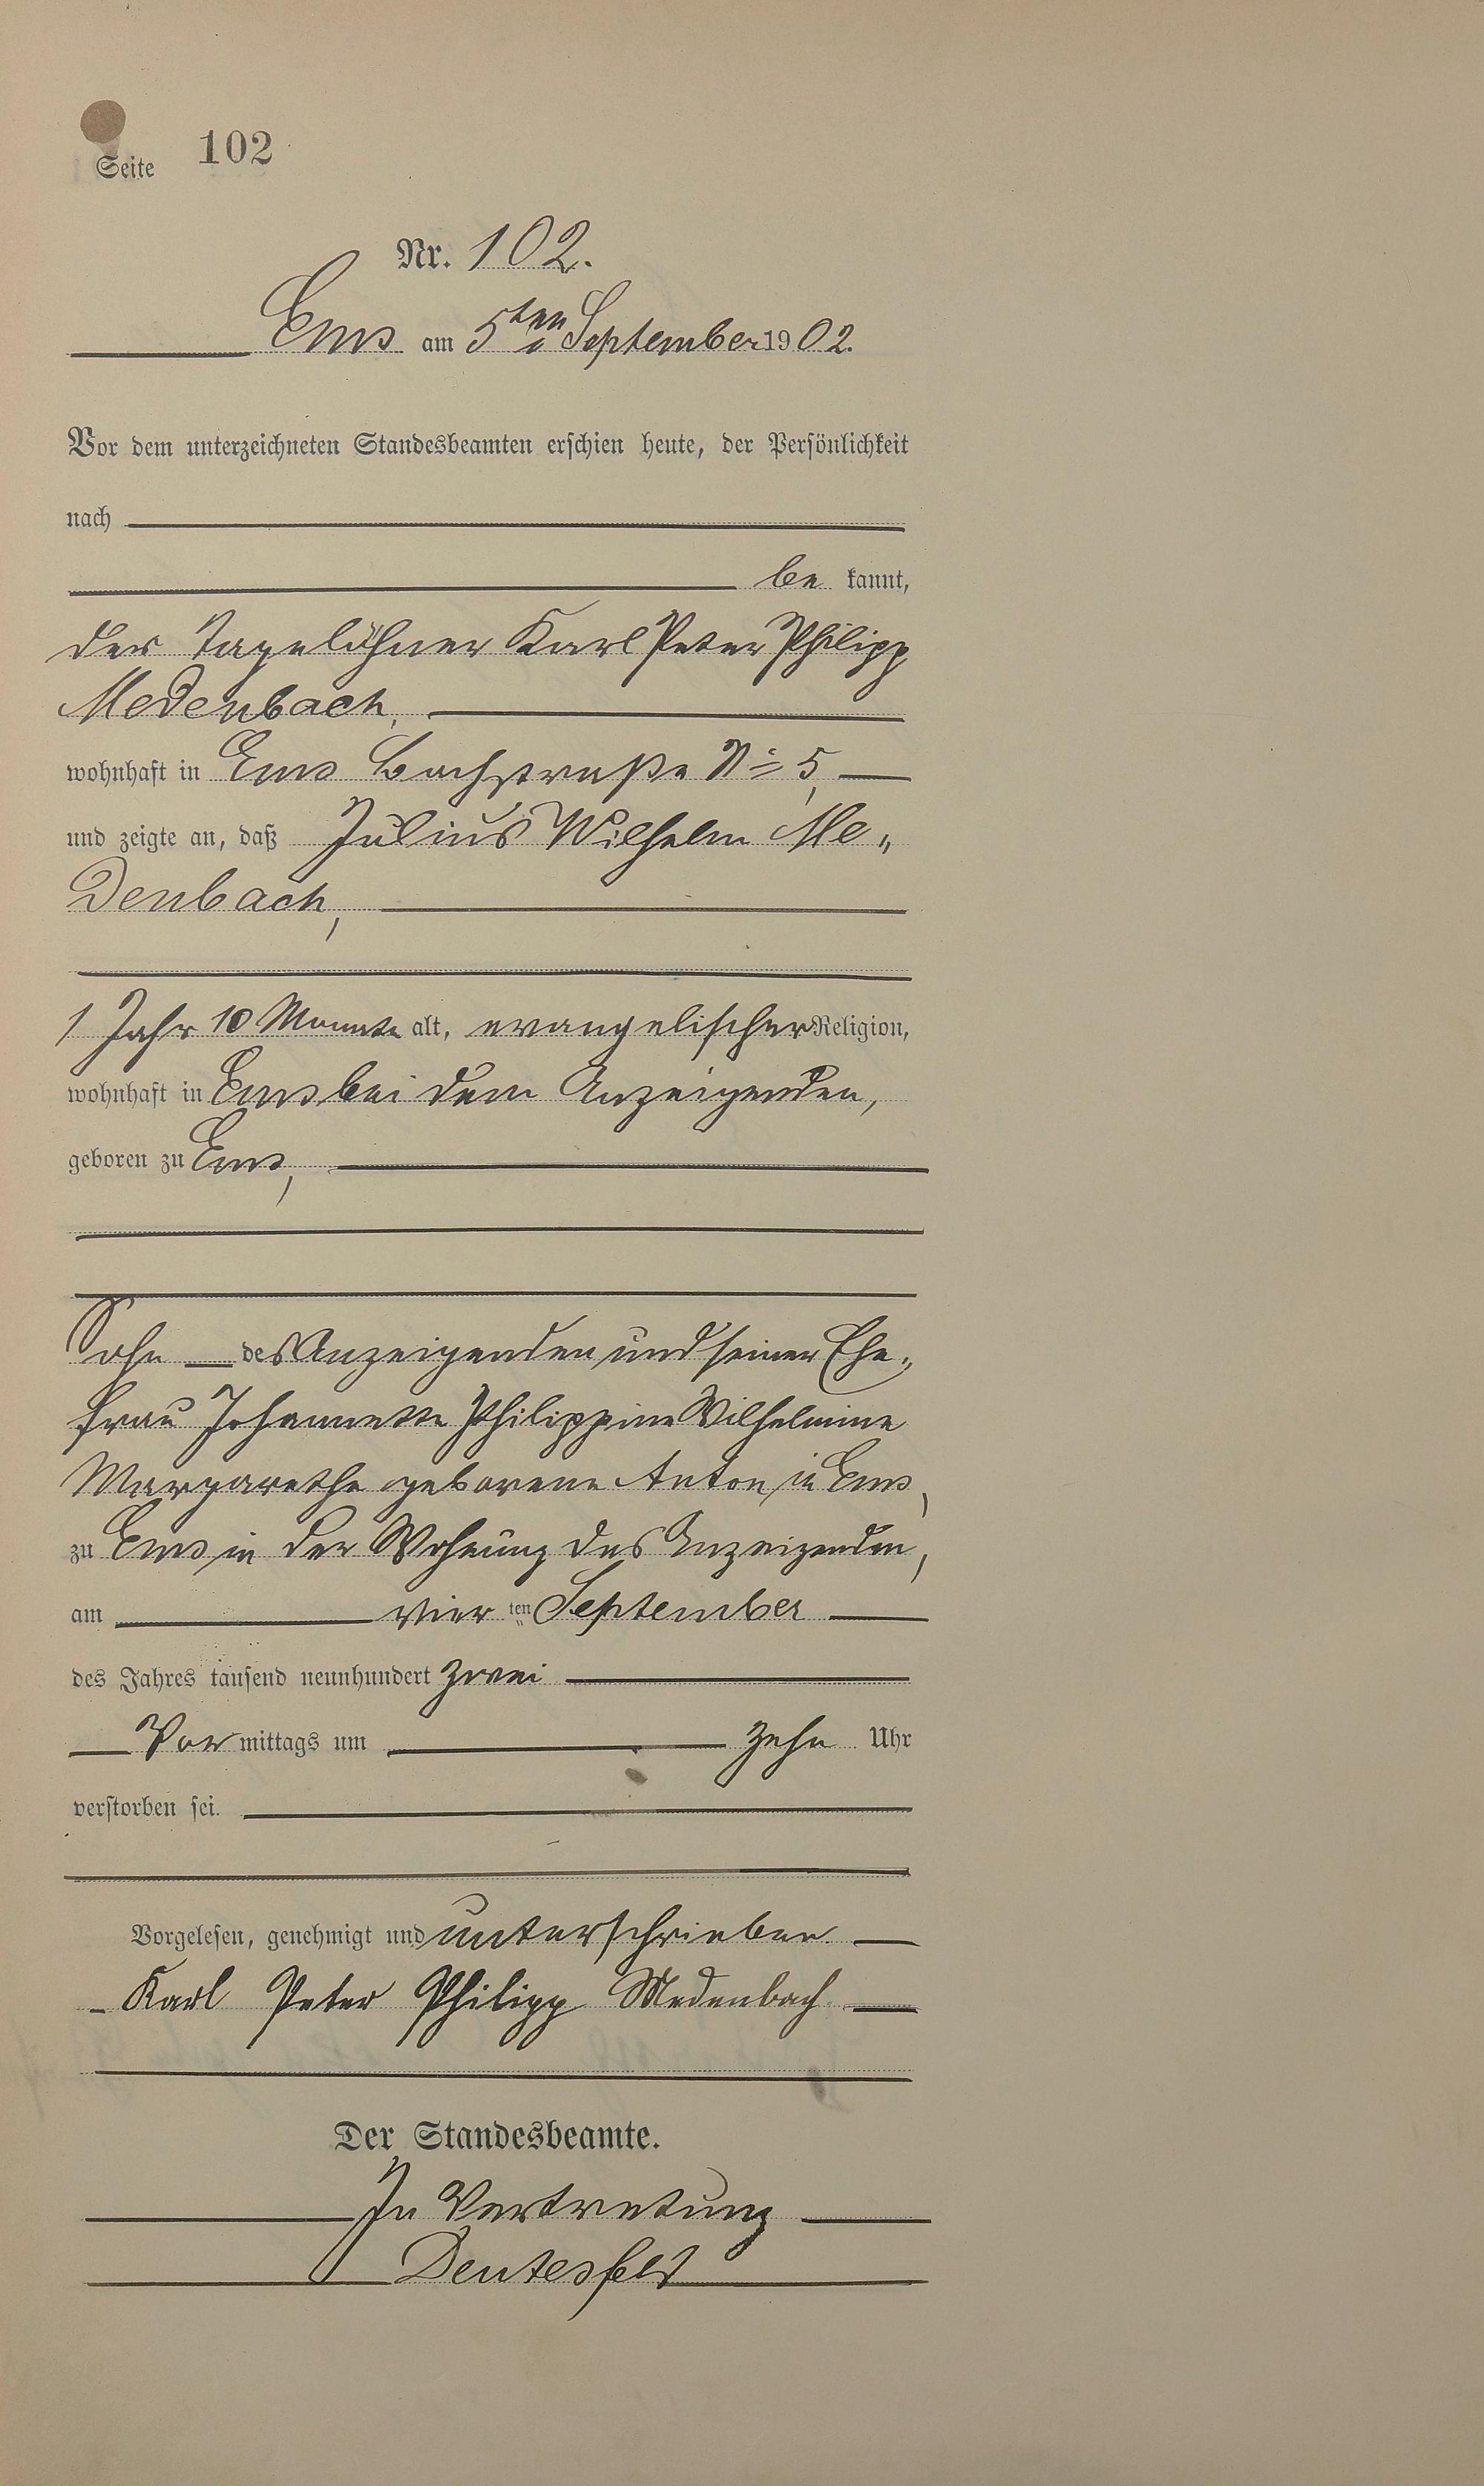 Seite 102
Nr. 102.
Ems am 5ten September 1902.
Vor dem unterzeichneten Standesbeamten erschien heute, der Persönlichkeit
nach
be kannt,
der Tagelöhner Karl Peter Philipp
Medenbach,
wohnhaft in Ems Bachstraße No 5,
und zeigte an, daß Julius Wilhelm Me„
denbach,
1 Jahr 10 Monate alt, evangelischer Religion,
wohnhaft in Ems bei dem Anzeigenden,
geboren zu Ems,
Sohn des Anzeigenden und seiner Ehe„
frau Johannette Philippine Wilhelmine
Margarethe geborene Anton in Ems,
zu Ems in der Wohnung des Anzeigenden,
am vier ten September
des Jahres tausend neunhundert zwei
Vor mittags um zehn Uhr
verstorben sei.
Vorgelesen, genehmigt und unterschrieben
Karl Peter Philipp Medenbach
Der Standesbeamte.
In Vertretung
Deutesfeld